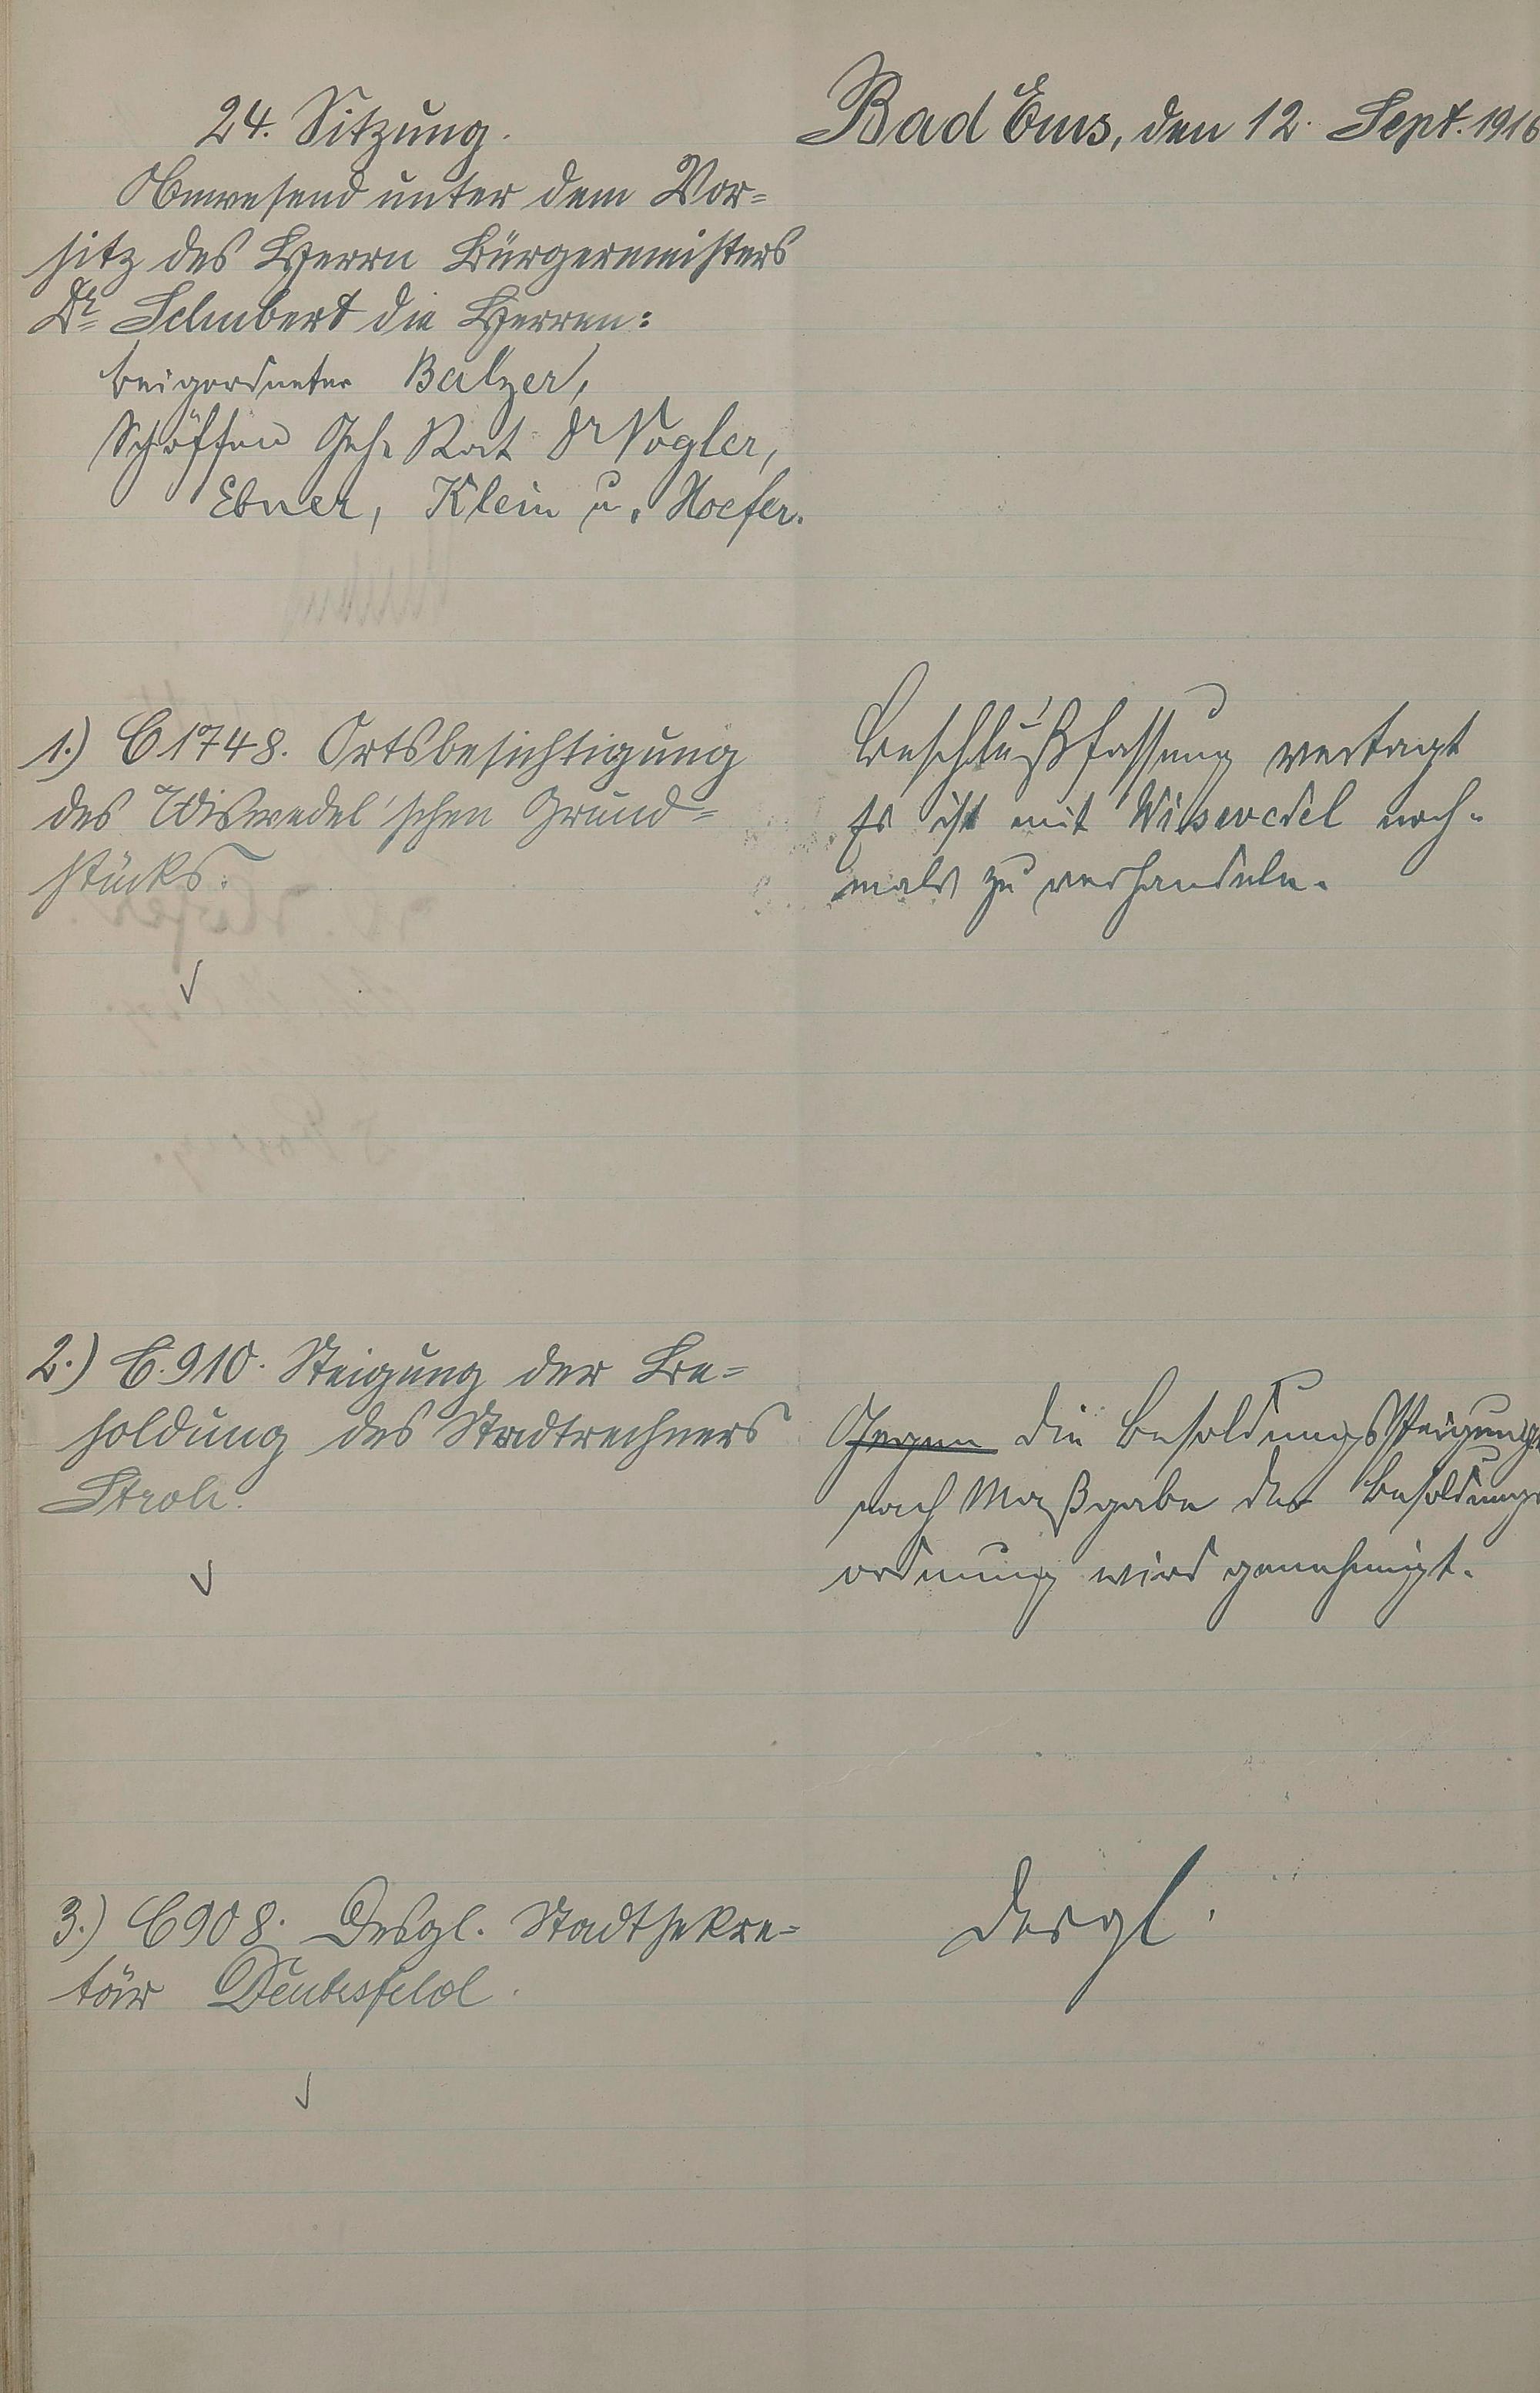 24. Sitzung.
Bad Ems, den 12. Sept. 1916
Anwesend unter dem Vor=
sitz des Herrn Bürgermeisters
Dr Schubert die Herren:
Beigeordneter Balzer,
Schöffen Geh. Rat Dr Vogler,
Ebner, Klein u. Hoefer.
1.) C 1748. Ortsbesichtigung
des Wiswedel'schen Grund=
stücks.
Beschlußfassung vertagt
Es ist mit Wiswedel noch-
mals zu verhandeln.
2.) C. 910. Steigung der Be=
soldung des Stadtrechners
Stroh.
Gegen die Besoldungssteigung
nach Maßgabe der Besoldungs
ordnung wird genehmigt.
3.) C 908. Desgl. Stadtsekre=
tär
Desgl.